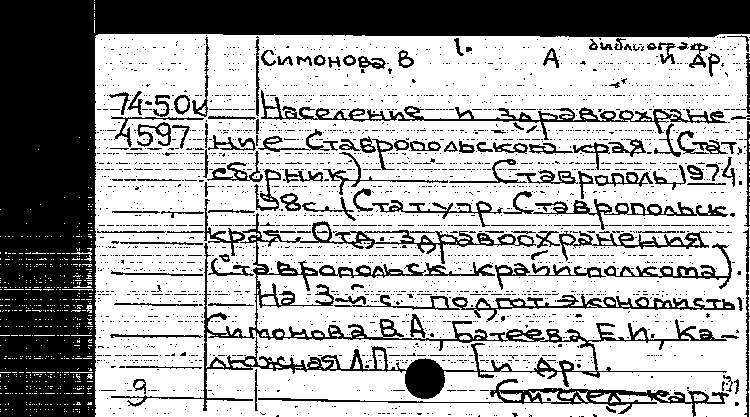 библиограф
1.
Симонова, В А. и др.
74-50к Население и здравоохране-
4597 ние Ставропольского края. (Стат.
сборник). Ставрополь, 1974.
98с. (Стат. упр. Ставропольск.
края. Отд. здравоохранения
Ставропольск. крайисполкома).
На 3-й с.: подгот. экономисты
Симонова В.А., Батеева Е.И., Ка-
люжная Л.П. [и др].
9 См. след. карт.